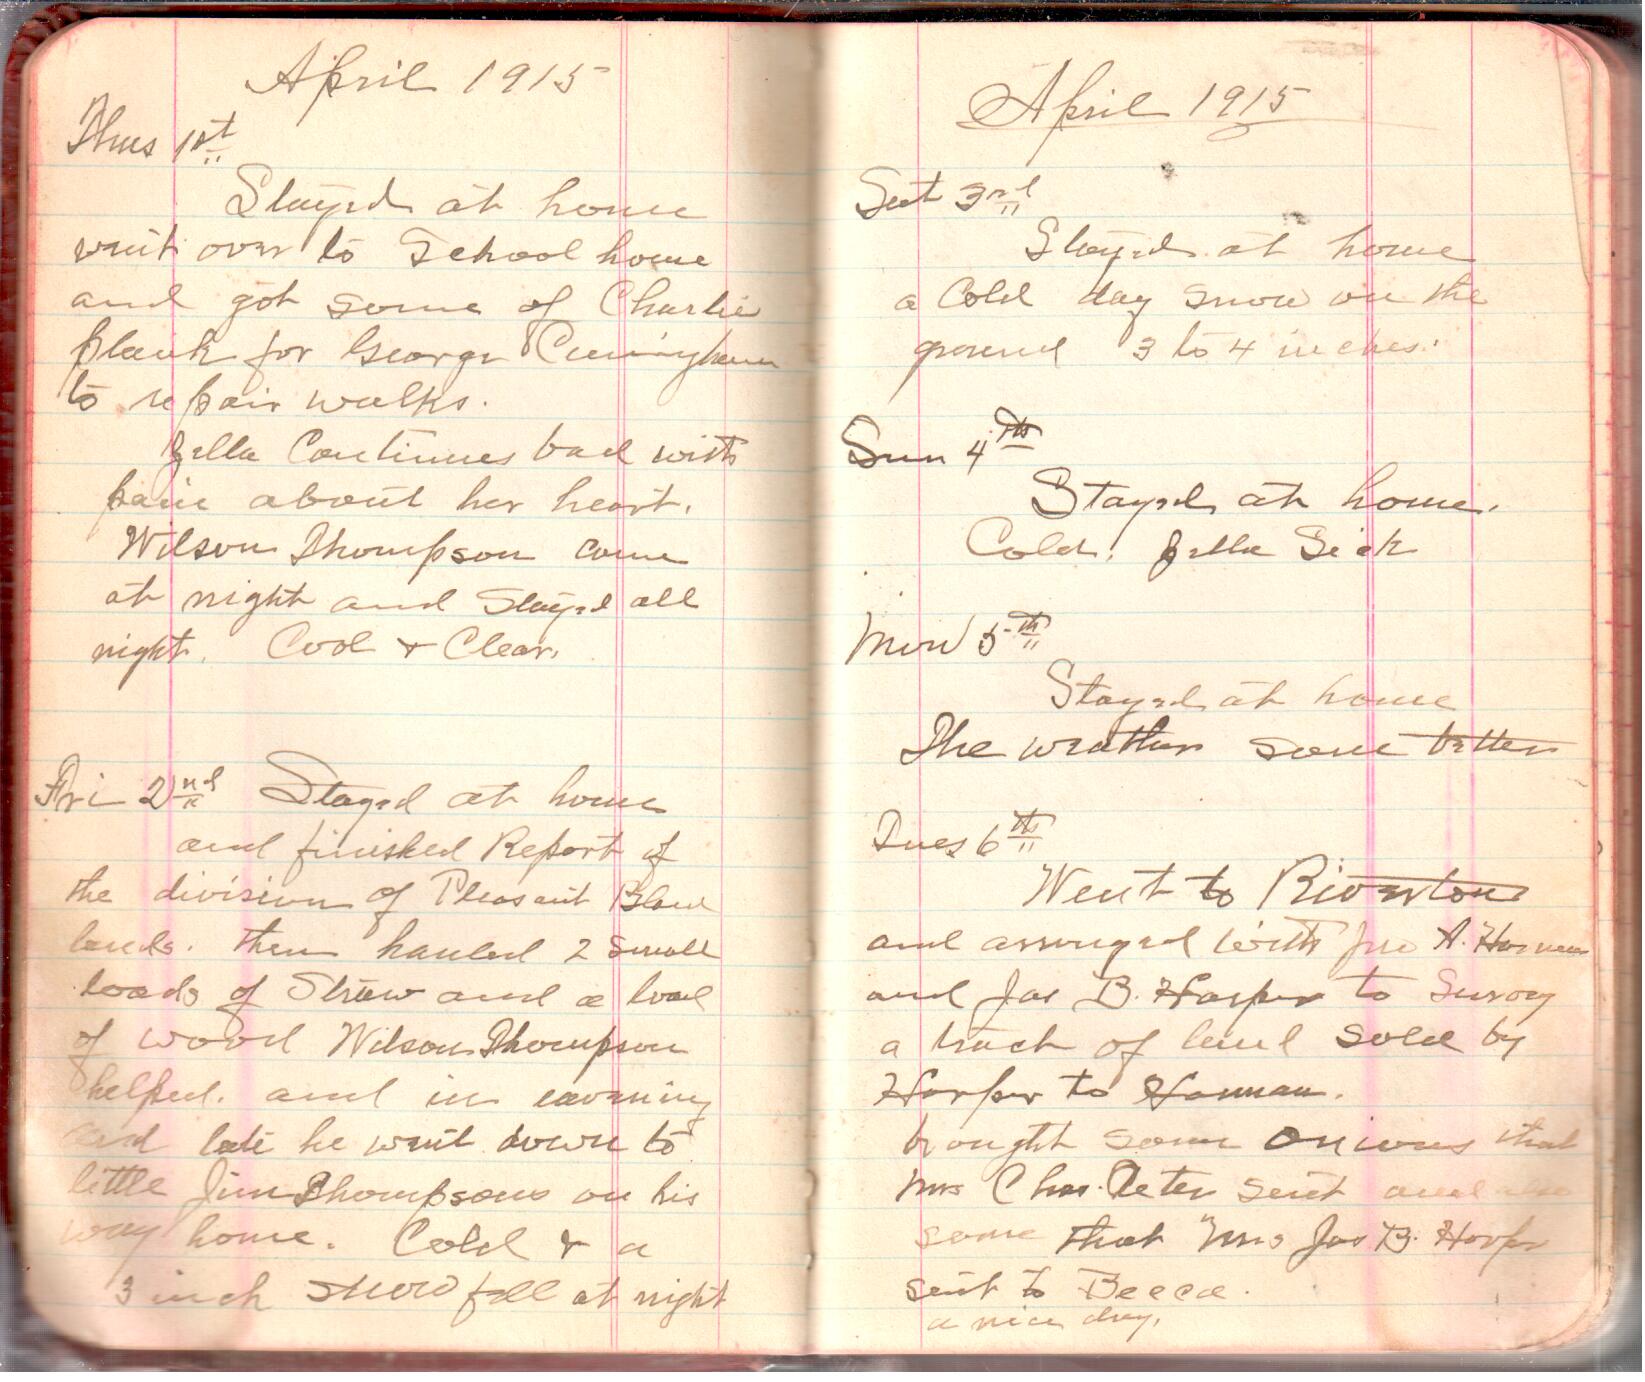 April 1915
Thus 1st
Stayed at home
went over to School house
and got some of Charlie
plank for George Cuningham
to repair walks.
Zella Continues bad with
pain about her heart.
Wilson Thompson came
at night and Stayed all
night. Cool & Clear.
Fri 2nd Stayed at home
and finished Report of
the division of Pleasant
lands. then hauled 2 small
loads of Straw and a load
of wood Wilson Thompson
helped. and in evening
and late he went down to
little Jim Thompsons on his
way home. Cold & a
3 inch snow fell at night
April 1915
Sat 3rd
Stayed at home
a Cold day snow on the
ground 3 to 4 inches.
Sun 4th
Stayed at home.
Cold. Zella Sick
Mon 5th
Stayed at home
The weather some better
Tues 6th
Went to Riverton
and arranged with Jno A. Hannan
and Jas B. Harper to Survey
a track of land sold by
Harper to Hannan.
brought some onions that
Mrs Chas. Peter sent and also
some that Mrs Jas B. Harper
sent to Becca.
a nice day.